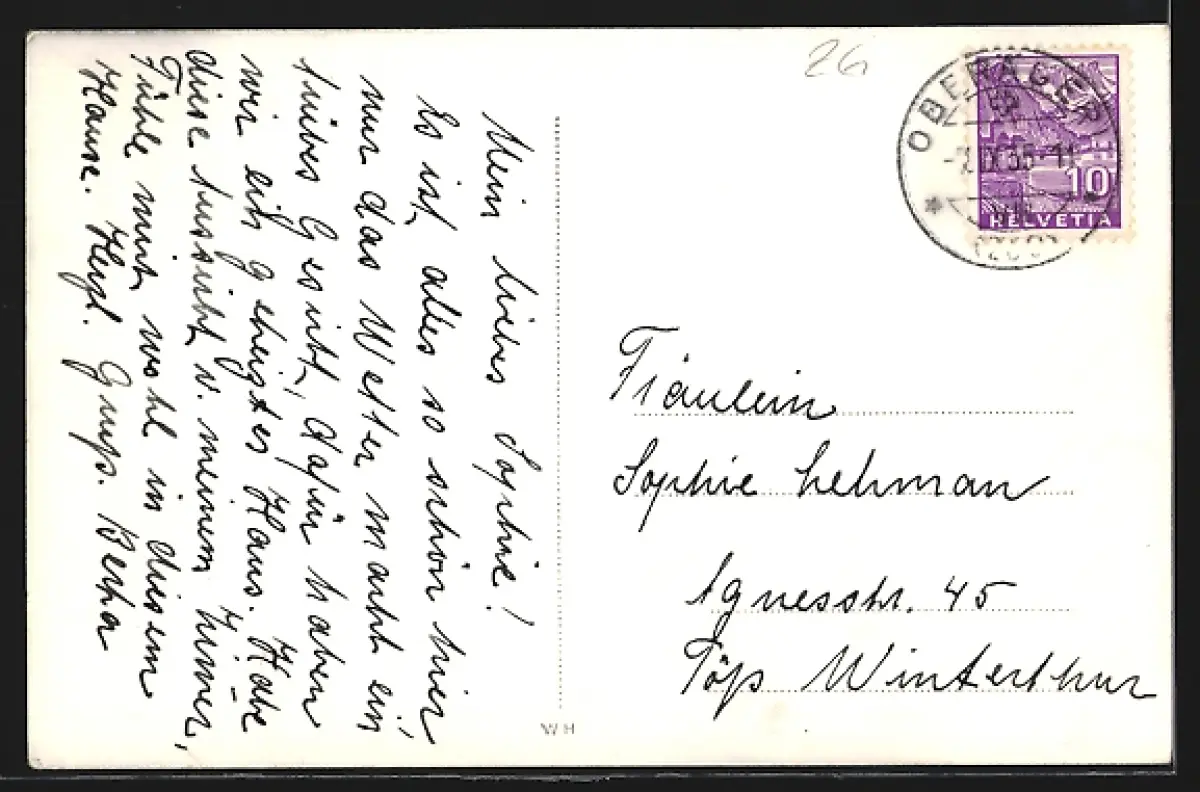 Mein liebes Sophie!
Es ist alles so schön hier
nur das Wetter macht ein
trübes Gesicht, dafür haben
wir ein geheiztes Haus. Habe
diese Aussicht v. meinem Zimmer,
Fühle mich wohl in diesem
Hause. Herzl. Gruss. Bertha
26
OBERÄGERI
2. IX 35-11
(ZUG)
10
HELVETIA
Fräulein
Sophie Lehman
Agnesstr. 45
Töss Winterthur
WH